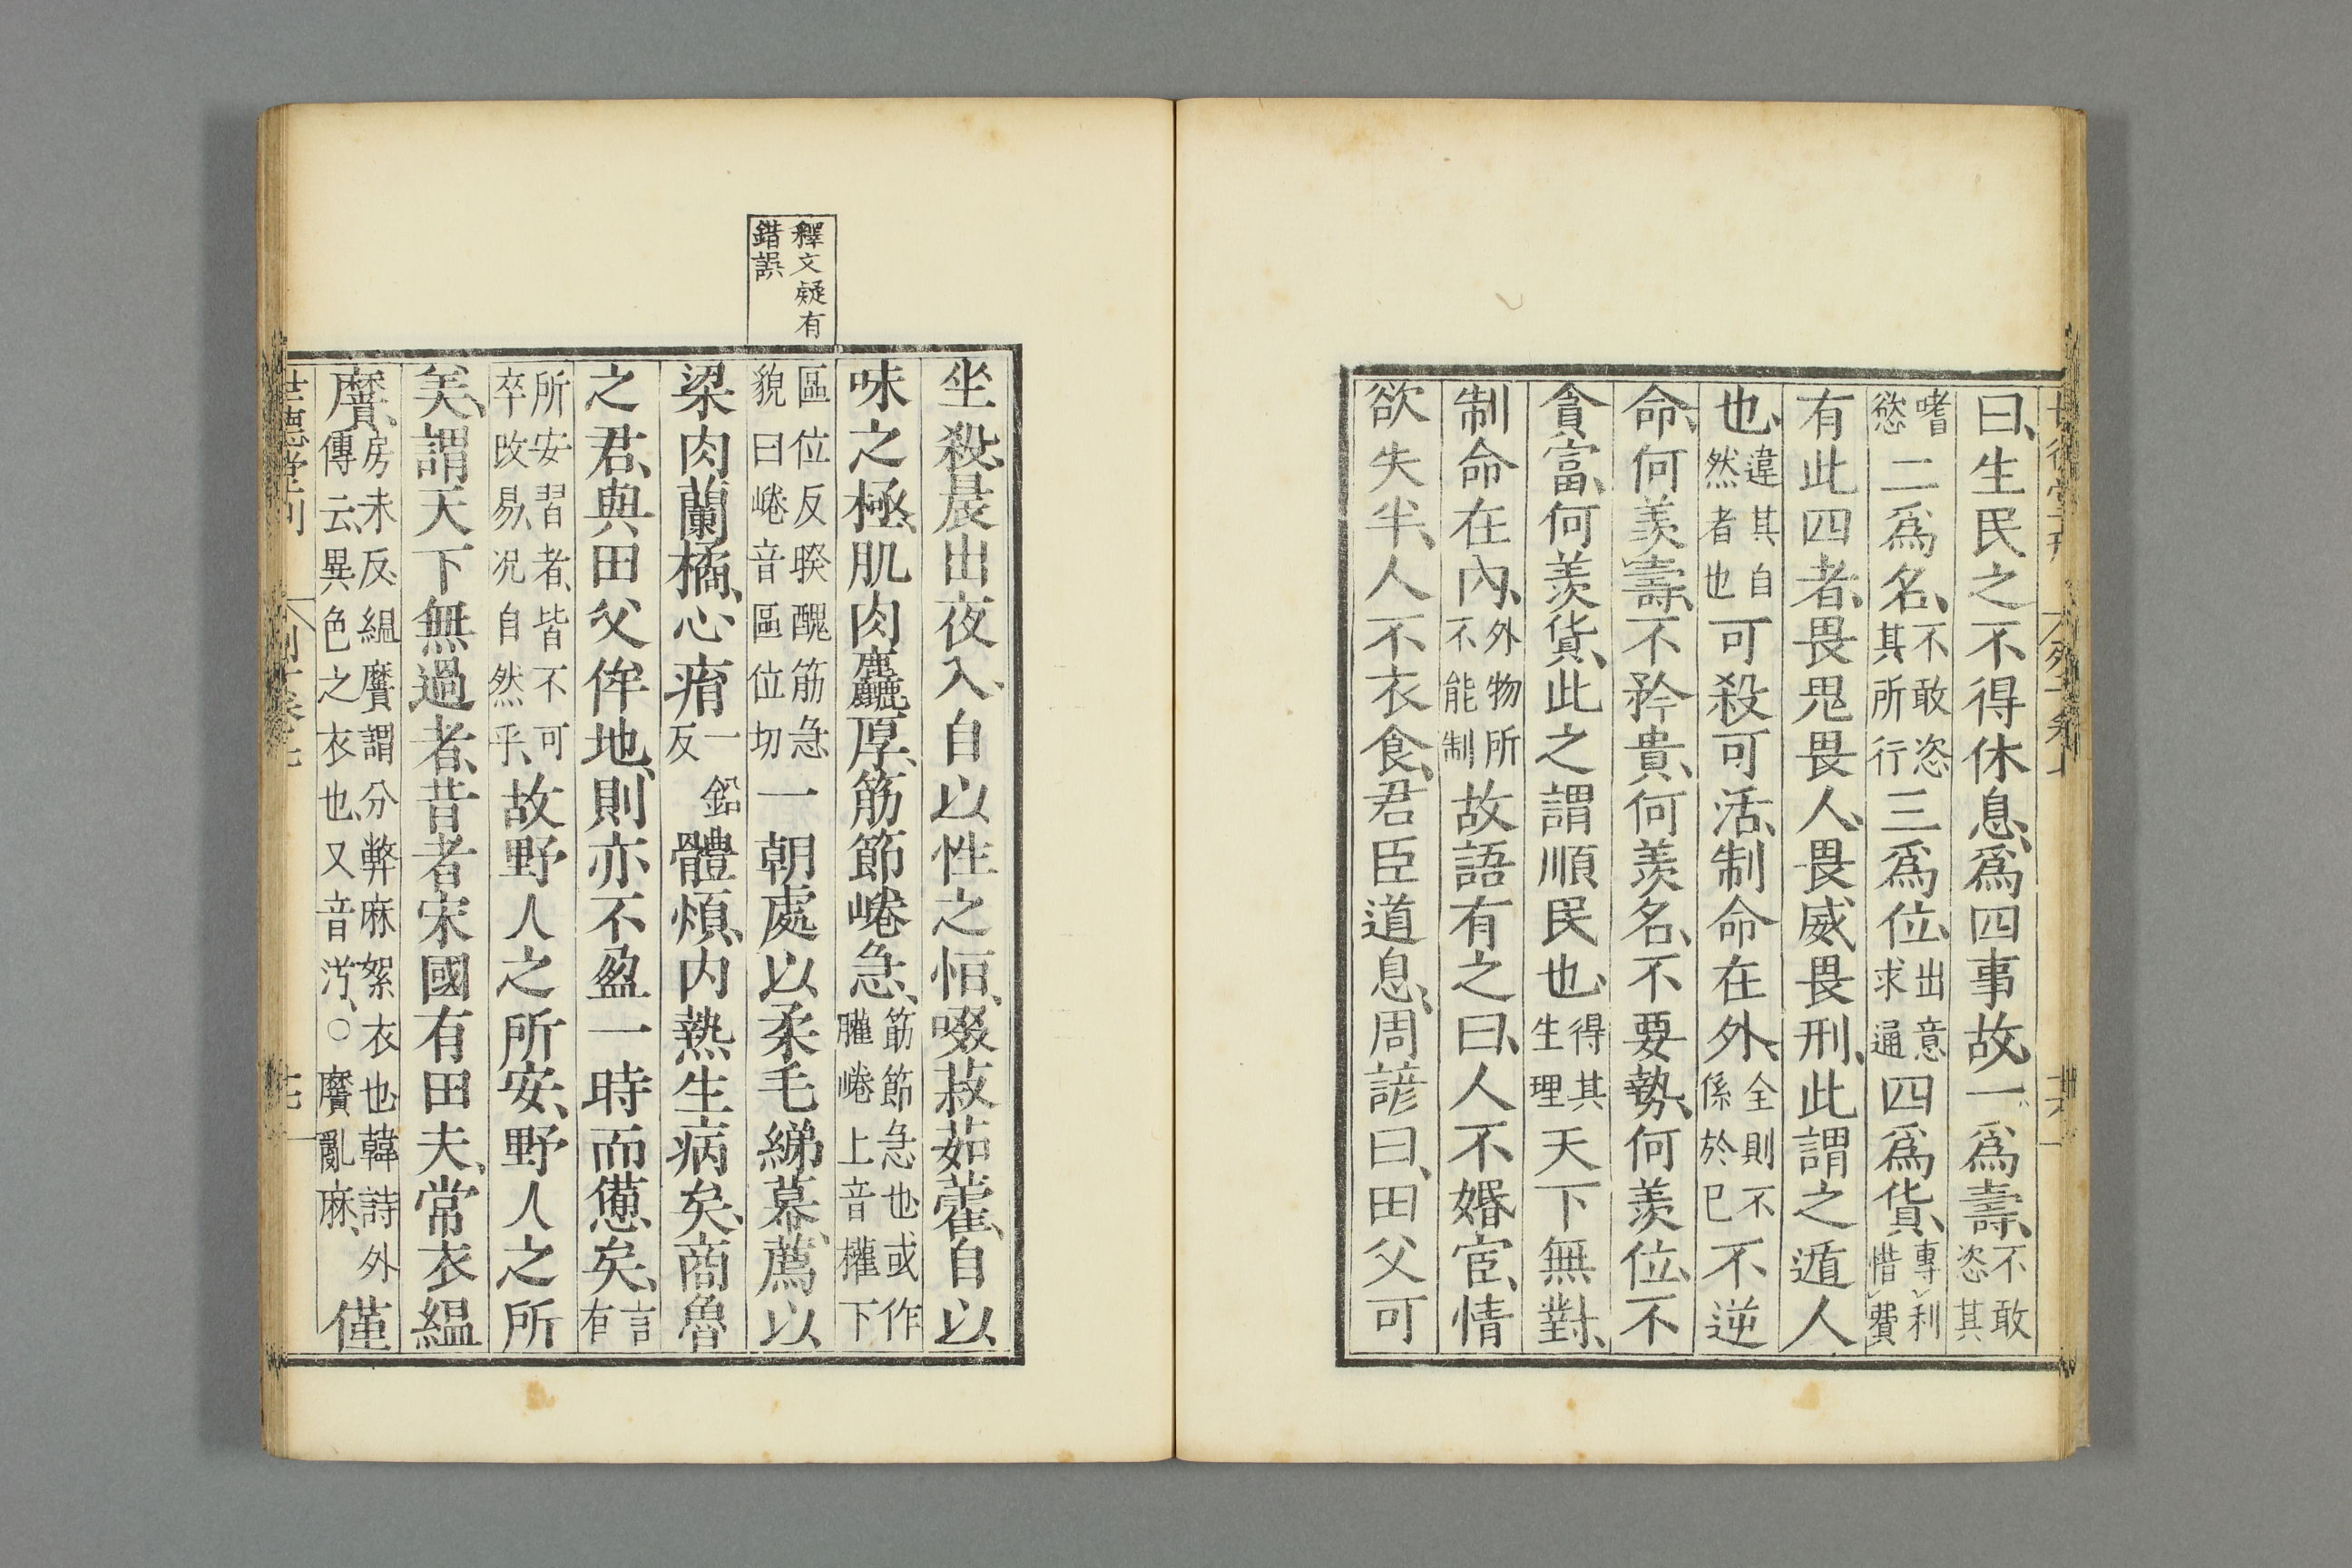 曰、生民之不得休息、爲四事故、一爲壽、不敢恣其
嗜慾二爲名、不敢恣其所行三爲位、出意求通四爲貨、專利惜費
有此四者、畏鬼畏人、畏威、畏刑、此謂之遁人
也、違其自然者也可殺可活、制命在外、全則不係於已不逆
命、何羨壽、不矜貴、何羨名、不要勢、何羨位、不
貪富、何羨貨、此之謂順民也、得其生理天下無對、
制命在內、外物所不能制故語有之曰、人不婚宦、情
欲失半、人不衣食、君臣道息、周諺曰、田父可
坐殺、晨出夜入、自以性之恒、啜菽茹藿、自以
味之極、肌肉麤厚、筋節㟡急、筋節急也或作䑏㟡上音權下
區位反䁤醜筋急貌曰㟡音區位切一朝處以柔毛綈幕、薦以
梁肉蘭橘、心㾓一鉛反體煩、內熱生病矣、商魯
之君、與田父侔地、則亦不盈一時而憊矣、言有
所安習者、皆不可卒改易、況自然乎、故野人之所安、野人之所
美、謂天下無過者、昔者宋國有田夫、常衣縕
黂、房未反縕黂謂分弊麻絮衣也韓詩外傳云、異色之衣也、又音汾、○黂亂麻、僅
釋文疑有
錯誤